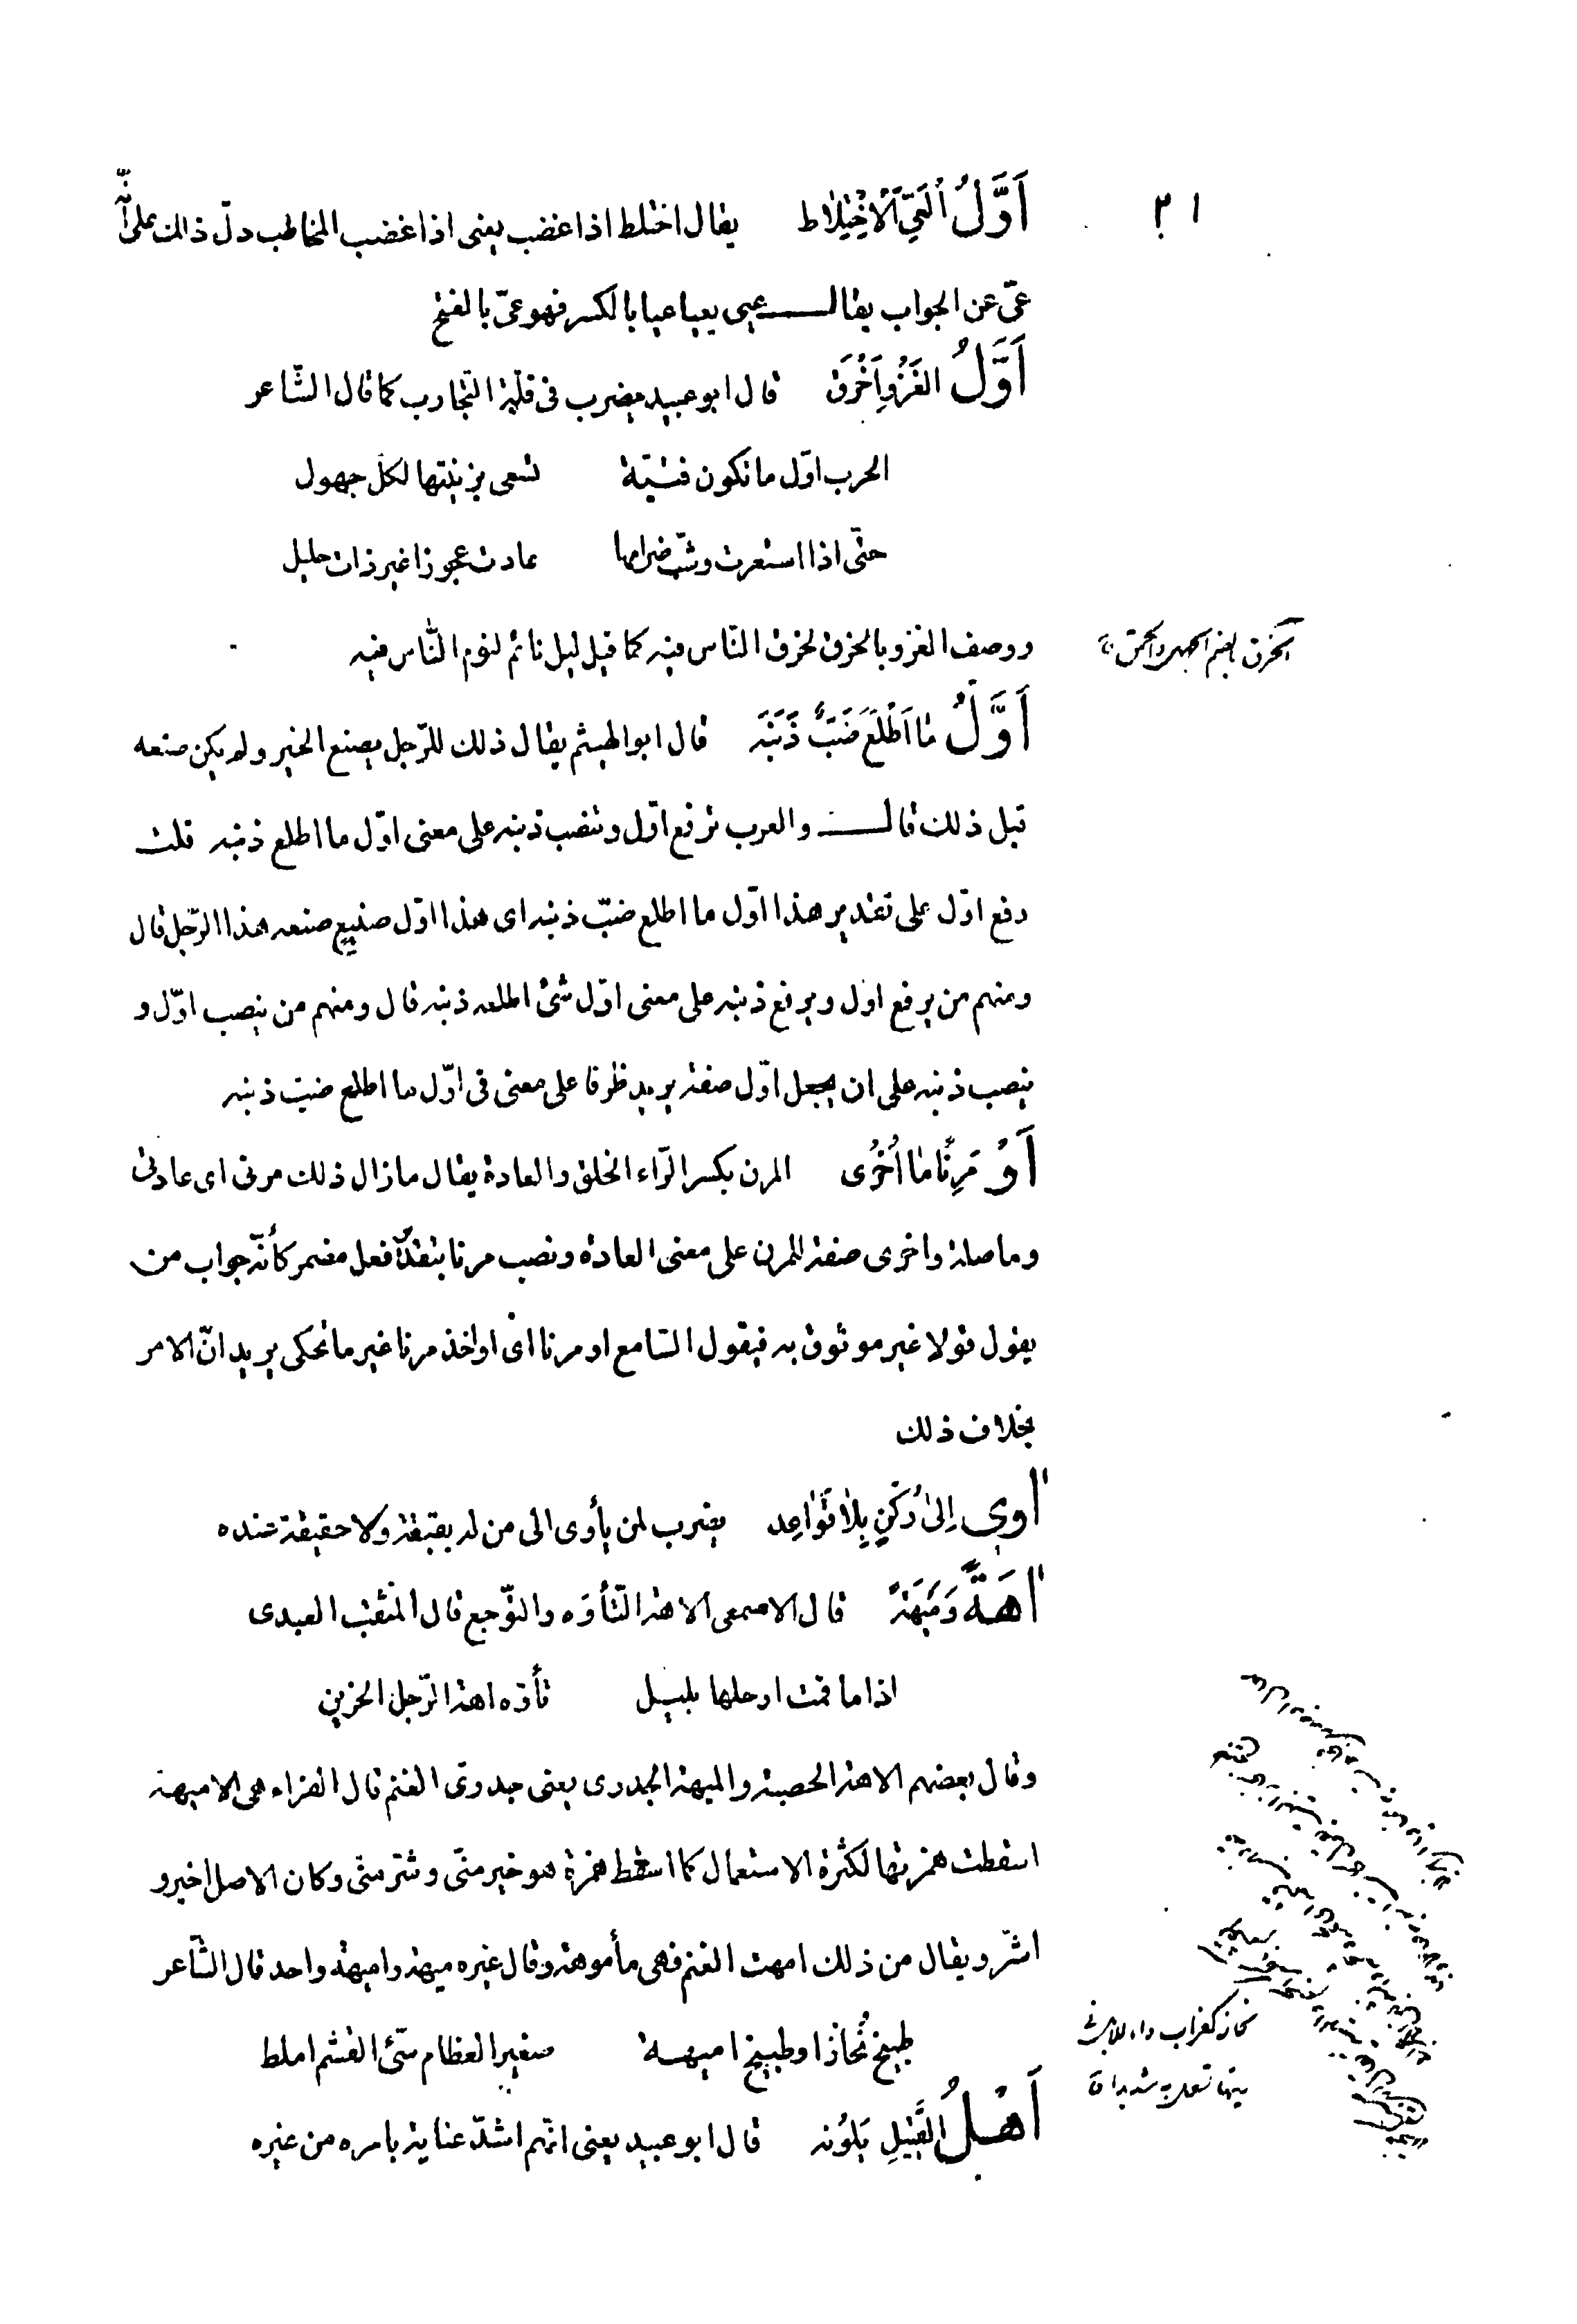 ٣١
أَوَّلُ الْعَيِّ الْاِخْتِلَاط يقال اختلط اذا غضب يعنى اذا غضب المخاطب دلّ ذالك على انّه
عىّ عن الجواب يقال عيى يعيا عيا بالكسر فهو عىّ بالفتح
أَوَّلُ الغَزْوِ اَخْرَق قال ابو عبيد يضرب فى قلّة التّجارب كما قال الشّاعر
الحرب اوّل ما تكون فتيّة تسعى بزينتها لكلّ جهول
حتّى اذا استعرت وشبّ ضرامها عادت عجوزا غير ذات حليل
ووصف الغزو بالخرق لخرق النّاس فيه كما قيل ليل نائم لنوم النّاس فيه
الخرق بالضم الجهل والحمق
أَوَّلُ مَا اَطْلَعَ ضَبٌّ ذَنَبَه قال ابو الهيثم يقال ذلك للرّجل يصنع الخير ولم يكن صنعه
قبل ذلك قال والعرب ترفع اوّل وتنصب ذنبه على معنى اوّل ما اطلع ذنبه قلت
رفع اوّل على تقدير هذا اوّل ما اطلع ضبّ ذنبه اى هذا اوّل صنيع صنعه هذا الرّجل قال
ومنهم من يرفع اوّل ويرفع ذنبه على معنى اوّل شئ اطلعه ذنبه قال ومنهم من ينصب اوّل و
ينصب ذنبه على ان يجعل اوّل صفة يريد ظرفا على معنى فى اوّل ما اطلع ضبّ ذنبه
أَوْ مَرِنًا مَا اُخْرَى المرن بكسر الرّاء الخلق والعادة يقال ما زال ذلك مرنى اى عادتى
وما صلة واخرى صفة للمرن على معنى العادة ونصب مرنا بتقدير فعل مضمر كأنّه جواب من
يقول قولا غير موثوق به فيقول السّامع او مرنا اى او اخذ مرنا غير ما تحكى يريد انّ الامر
بخلاف ذلك
آوى اِلىٰ رُكْنٍ بِلاٰ قَوٰاعِد يضرب لمن يأوى الى من له بقبقة ولا حقيقة عنده
آهَةٌ وَمَيْهَةٌ قال الاصمعى الاهة التّأوّه والتوّجع قال المثقّب العبدى
اذا ما قمت ارحلها بليل تأوّه اهة الرّجل الحزين
وقال بعضهم الاهة الحصبة والميهة الجدرى يعنى جدرىّ الغنم قال الفرّاء هى الاميهة
اسقطت همزتها لكثرة الاستعمال كما اسقط همزة هو خير منّى وشرّ منّى وكان الاصل اخير و
اشرّ ويقال من ذلك امهت الغنم فهى مأموهة وقال غيره ميهة واميهة واحد قال الشّاعر
طبيخ نُحاز او طبيخ اميهة صغير العظام سّئ القشم املط
نحاز كغراب داء للابل فى
رئتها تسعل به شديدا ق
أَهْلُ القَتِيلِ يَلُونَه قال ابو عبيد يعنى انّهم اشدّ عناية بامره من غيره